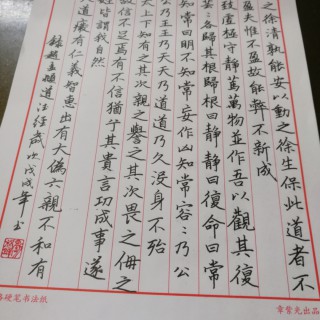 之徐清孰能安以動之徐生保此道者不
盈夫惟不盈故能弊不新成
致虛極守靜篤萬物並作吾以觀其復
芸々各歸其根歸根曰靜靜曰復命曰常
知常曰明不知常妄作凶知常容容乃公
公乃王王乃天天乃道道乃久沒身不殆
大上下知有之其次親之譽之其次畏之侮之
故信不足焉有不信猶兮其貴言功成事遂
姓皆謂我自然
道廢有仁義智惠出有大偽六親不和有
錄趙孟頫道德經歲次戊戌年書
硬笔书法纸
章紫光出品